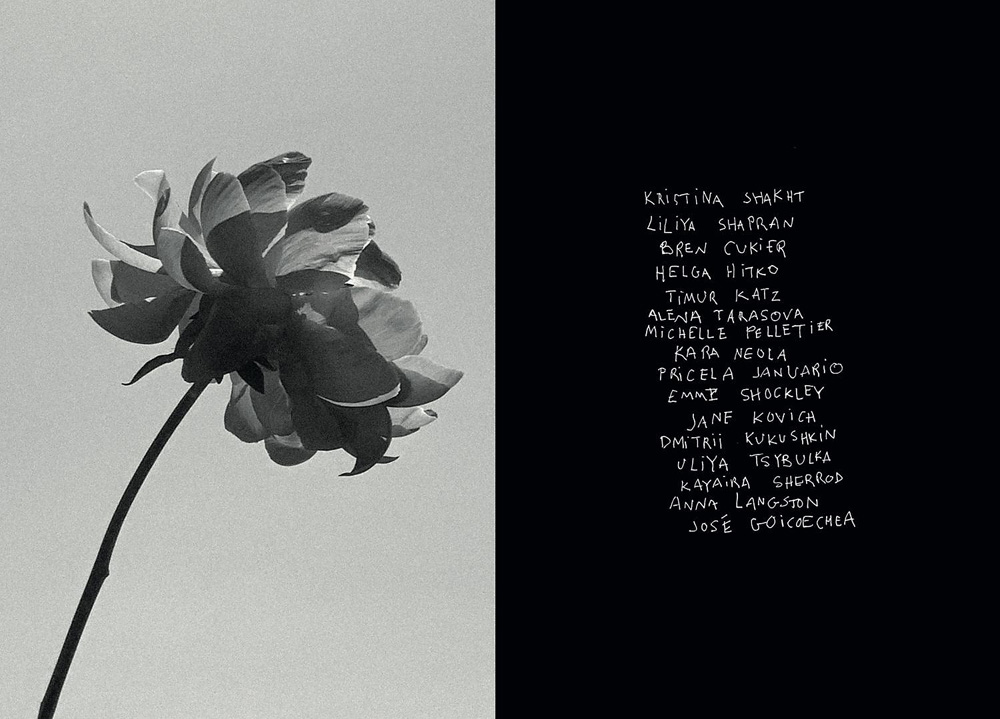 KRISTINA SHAKHT
LILIYA SHAPRAN
BREN CUKIER
HELGA HITKO
TIMUR KATZ
ALENA TARASOVA
MICHELLE PELLETIER
KARA NEOLA
PRICELA JANUARIO
EMME SHOCKLEY
JANE KOVICH
DMITRII KUKUSHKIN
ULIYA TSYBULKA
KAYAIRA SHERROD
ANNA LANGSTON
JOSÉ GOICOECHEA